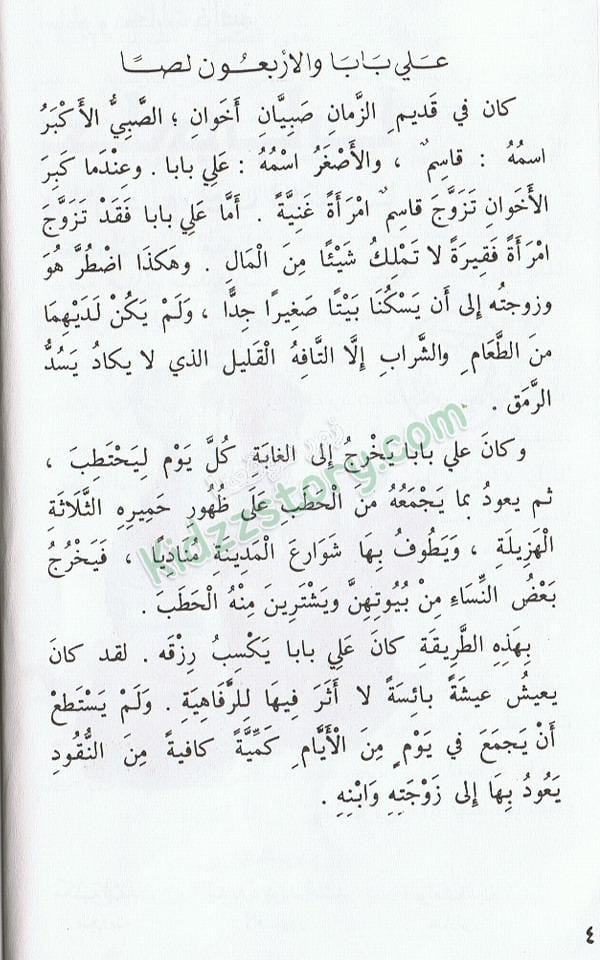 عَلي بَابَا والأرْبعُون لصًا
كان في قَديمِ الزَّمانِ صَبِيَّانِ أَخَوانِ ؛ الصَّبِيُّ الأَكْبَرُ
اسمُهُ : قاسِمٌ ، والأصْغَرُ اسْمُهُ : عَلِي بابا . وعِنْدَما كَبِرَ
الأَخَوانِ تَزَوَّجَ قاسِمٌ امْرَأَةً غَنِيَّةً . أمَّا عَلِي بابا فَقَدْ تَزَوَّجَ
امْرَأَةً فَقِيرَةً لا تَمْلِكُ شَيْئًا مِنَ الْمَالِ . وهَكَذَا اضْطُرَّ هُوَ
وزوجتُه إلى أَن يَسْكُنَا بَيْتًا صَغِيرًا جِدًّا ، وَلَمْ يَكُنْ لَدَيْهِمَا
منَ الطَّعَامِ والشَّرابِ إلَّا التَّافِهُ الْقَليل الذي لا يكادُ يَسُدُّ
الرَّمَق .
وكانَ علي بابا يَخْرجُ إلى الغابَة كُلَّ يَوْم لِيَحْتَطِبَ ،
ثم يعودُ بما يَجْمَعُهُ منَ الْحَطَبِ عَلَى ظُهُورِ حَمِيرِه الثَّلَاثَةِ
الْهَزِيلَةِ ، وَيَطُوفُ بِهَا شَوَارِعَ الْمَدِينَةِ مُنَادِيًا ، فَيَخْرُجُ
بَعْضُ النِّسَاءِ مِنْ بُيُوتِهِنَّ ويَشْتَرِينَ مِنْهُ الْحَطَبَ .
بِهَذِهِ الطَّرِيقَةِ كانَ عَلِي بابا يَكْسِبُ رِزْقَه . لقد كانَ
يعيشُ عيشَةً بائِسَةً لا أَثَرَ فِيهَا لِلرَّفاهِيَةِ . وَلَمْ يَسْتَطِعْ
أَنْ يَجمَعَ في يَوْمٍ مِنَ الْأَيَّامِ كَمِّيَّةً كافيةً مِنَ النُّقُودِ
يَعُودُ بِهَا إلى زَوْجَتِهِ وَابْنِهِ .
Kidzzstory.com
٤